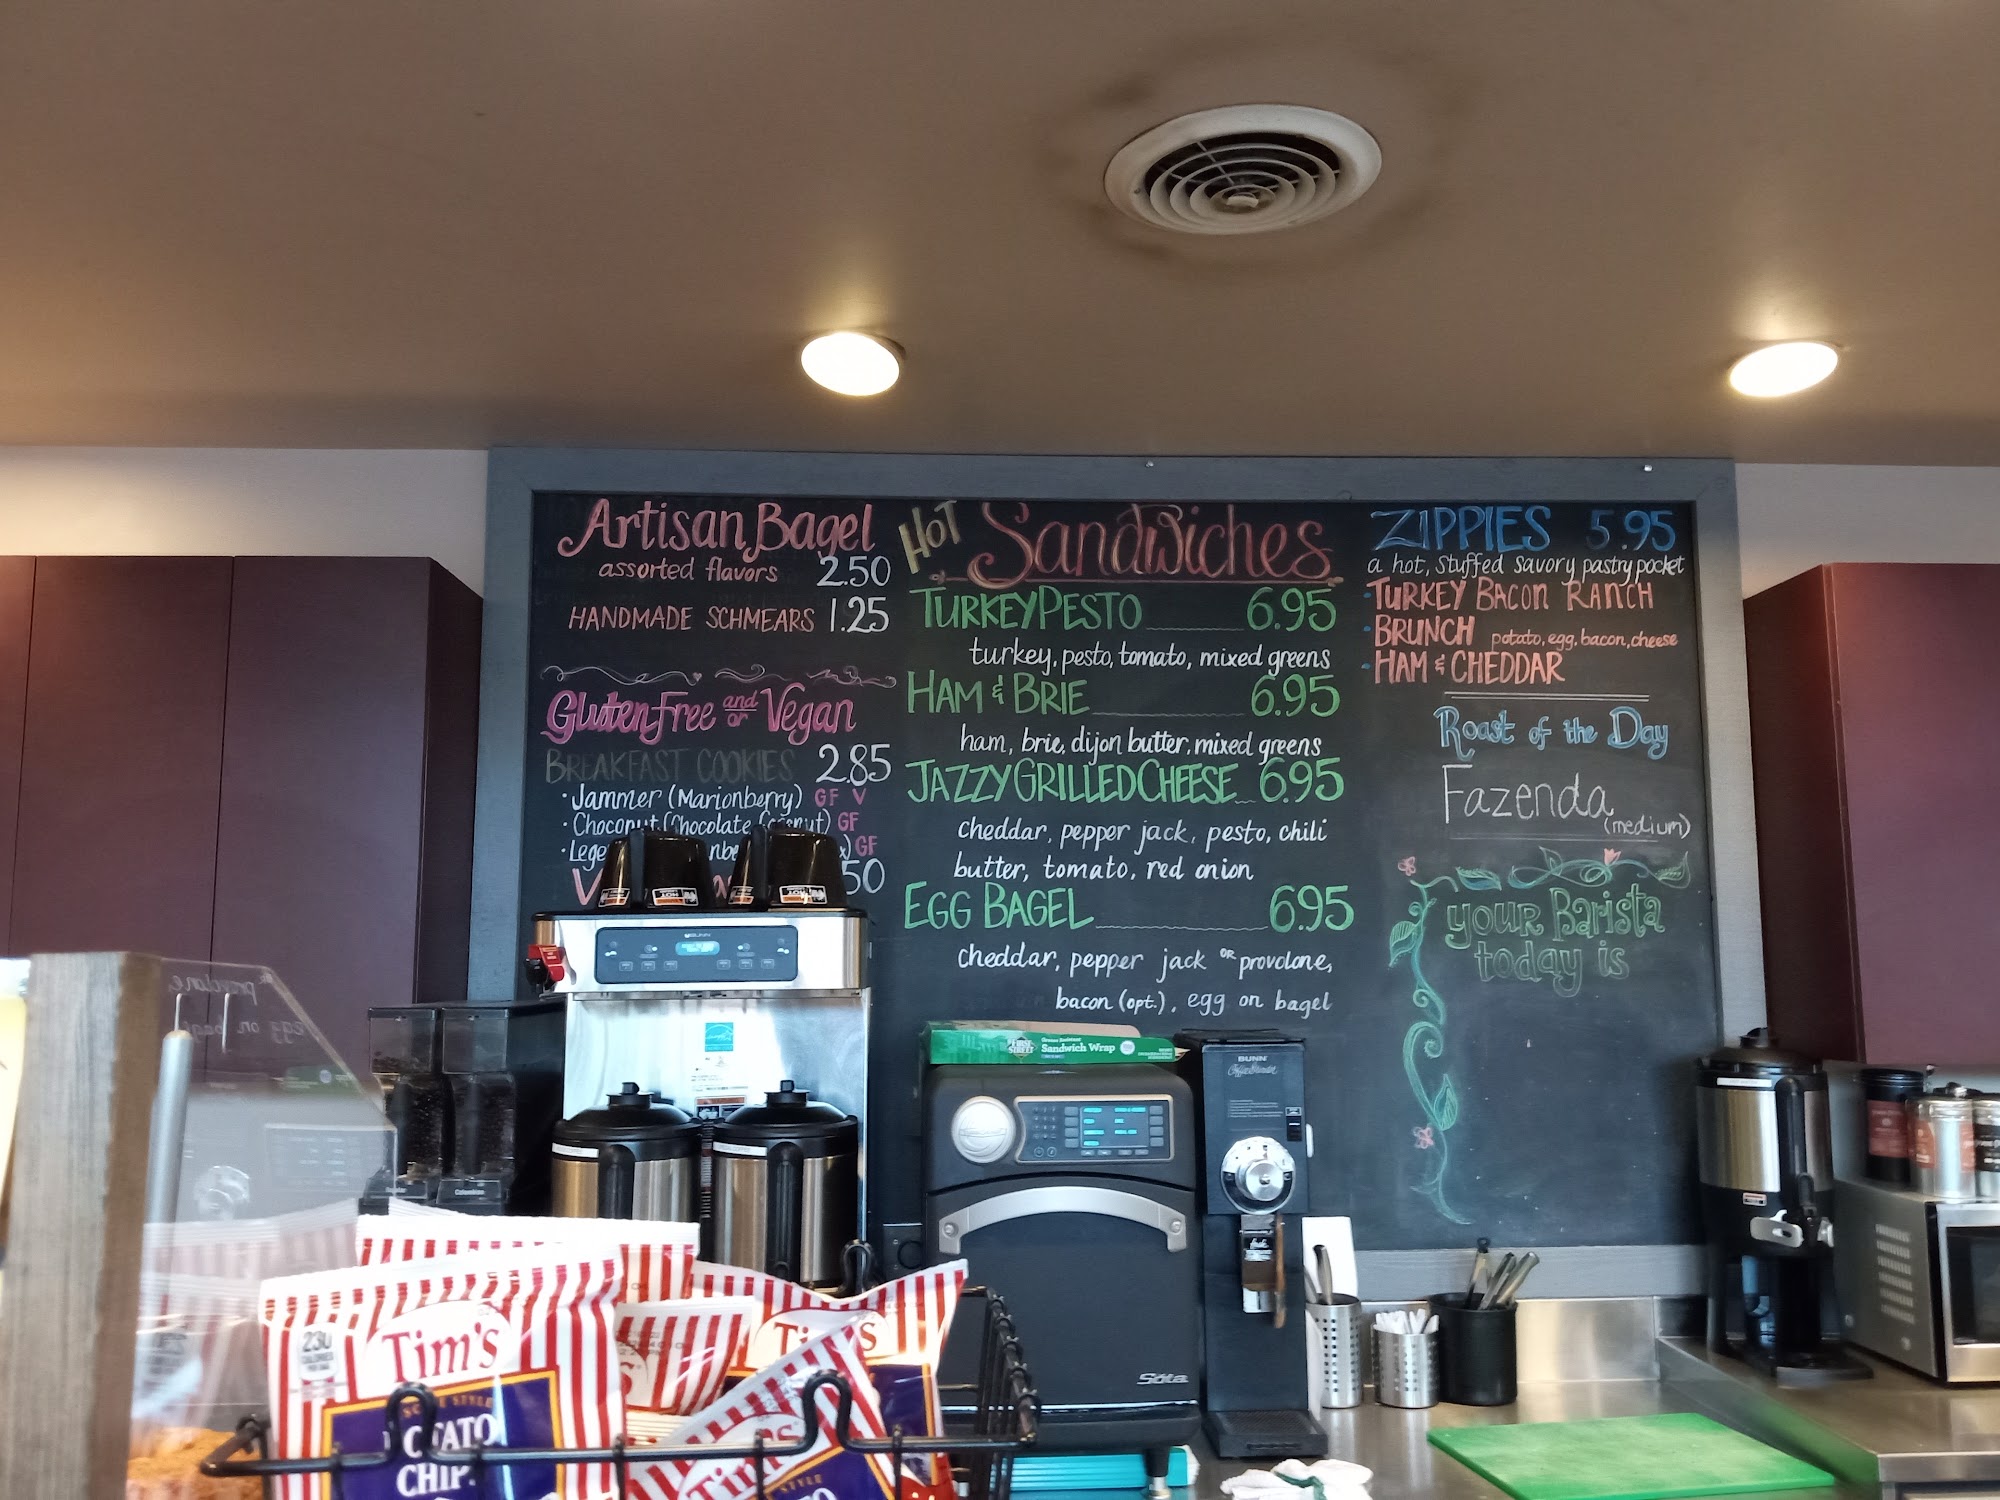 Artisan Bagel
assorted flavors 2.50
HANDMADE SCHMEARS 1.25
Gluten Free and or Vegan
BREAKFAST COOKIES 2.85
· Jammer (Marionberry) GF V
· Choconut (Chocolate Coconut) GF
GF
50
HOT Sandwiches
TURKEY PESTO 6.95
turkey, pesto, tomato, mixed greens
HAM & BRIE 6.95
ham, brie, dijon butter, mixed greens
JAZZY GRILLED CHEESE 6.95
cheddar, pepper jack, pesto, chili
butter, tomato, red onion
EGG BAGEL 6.95
cheddar, pepper jack OR provolone,
bacon (opt.), egg on bagel
ZIPPIES 5.95
a hot, stuffed savory pastry pocket
· TURKEY BACON RANCH
· BRUNCH potato, egg, bacon, cheese
· HAM & CHEDDAR
Roast of the Day
Fazenda
(medium)
your Barista
today is
BUNN
HOT
HOT
FIRST STREET
Sandwich Wrap
BUNN
Sōta
230
CALORIES
Tim's
POTATO
CHIPS
Tim's
Tim's
STYLE